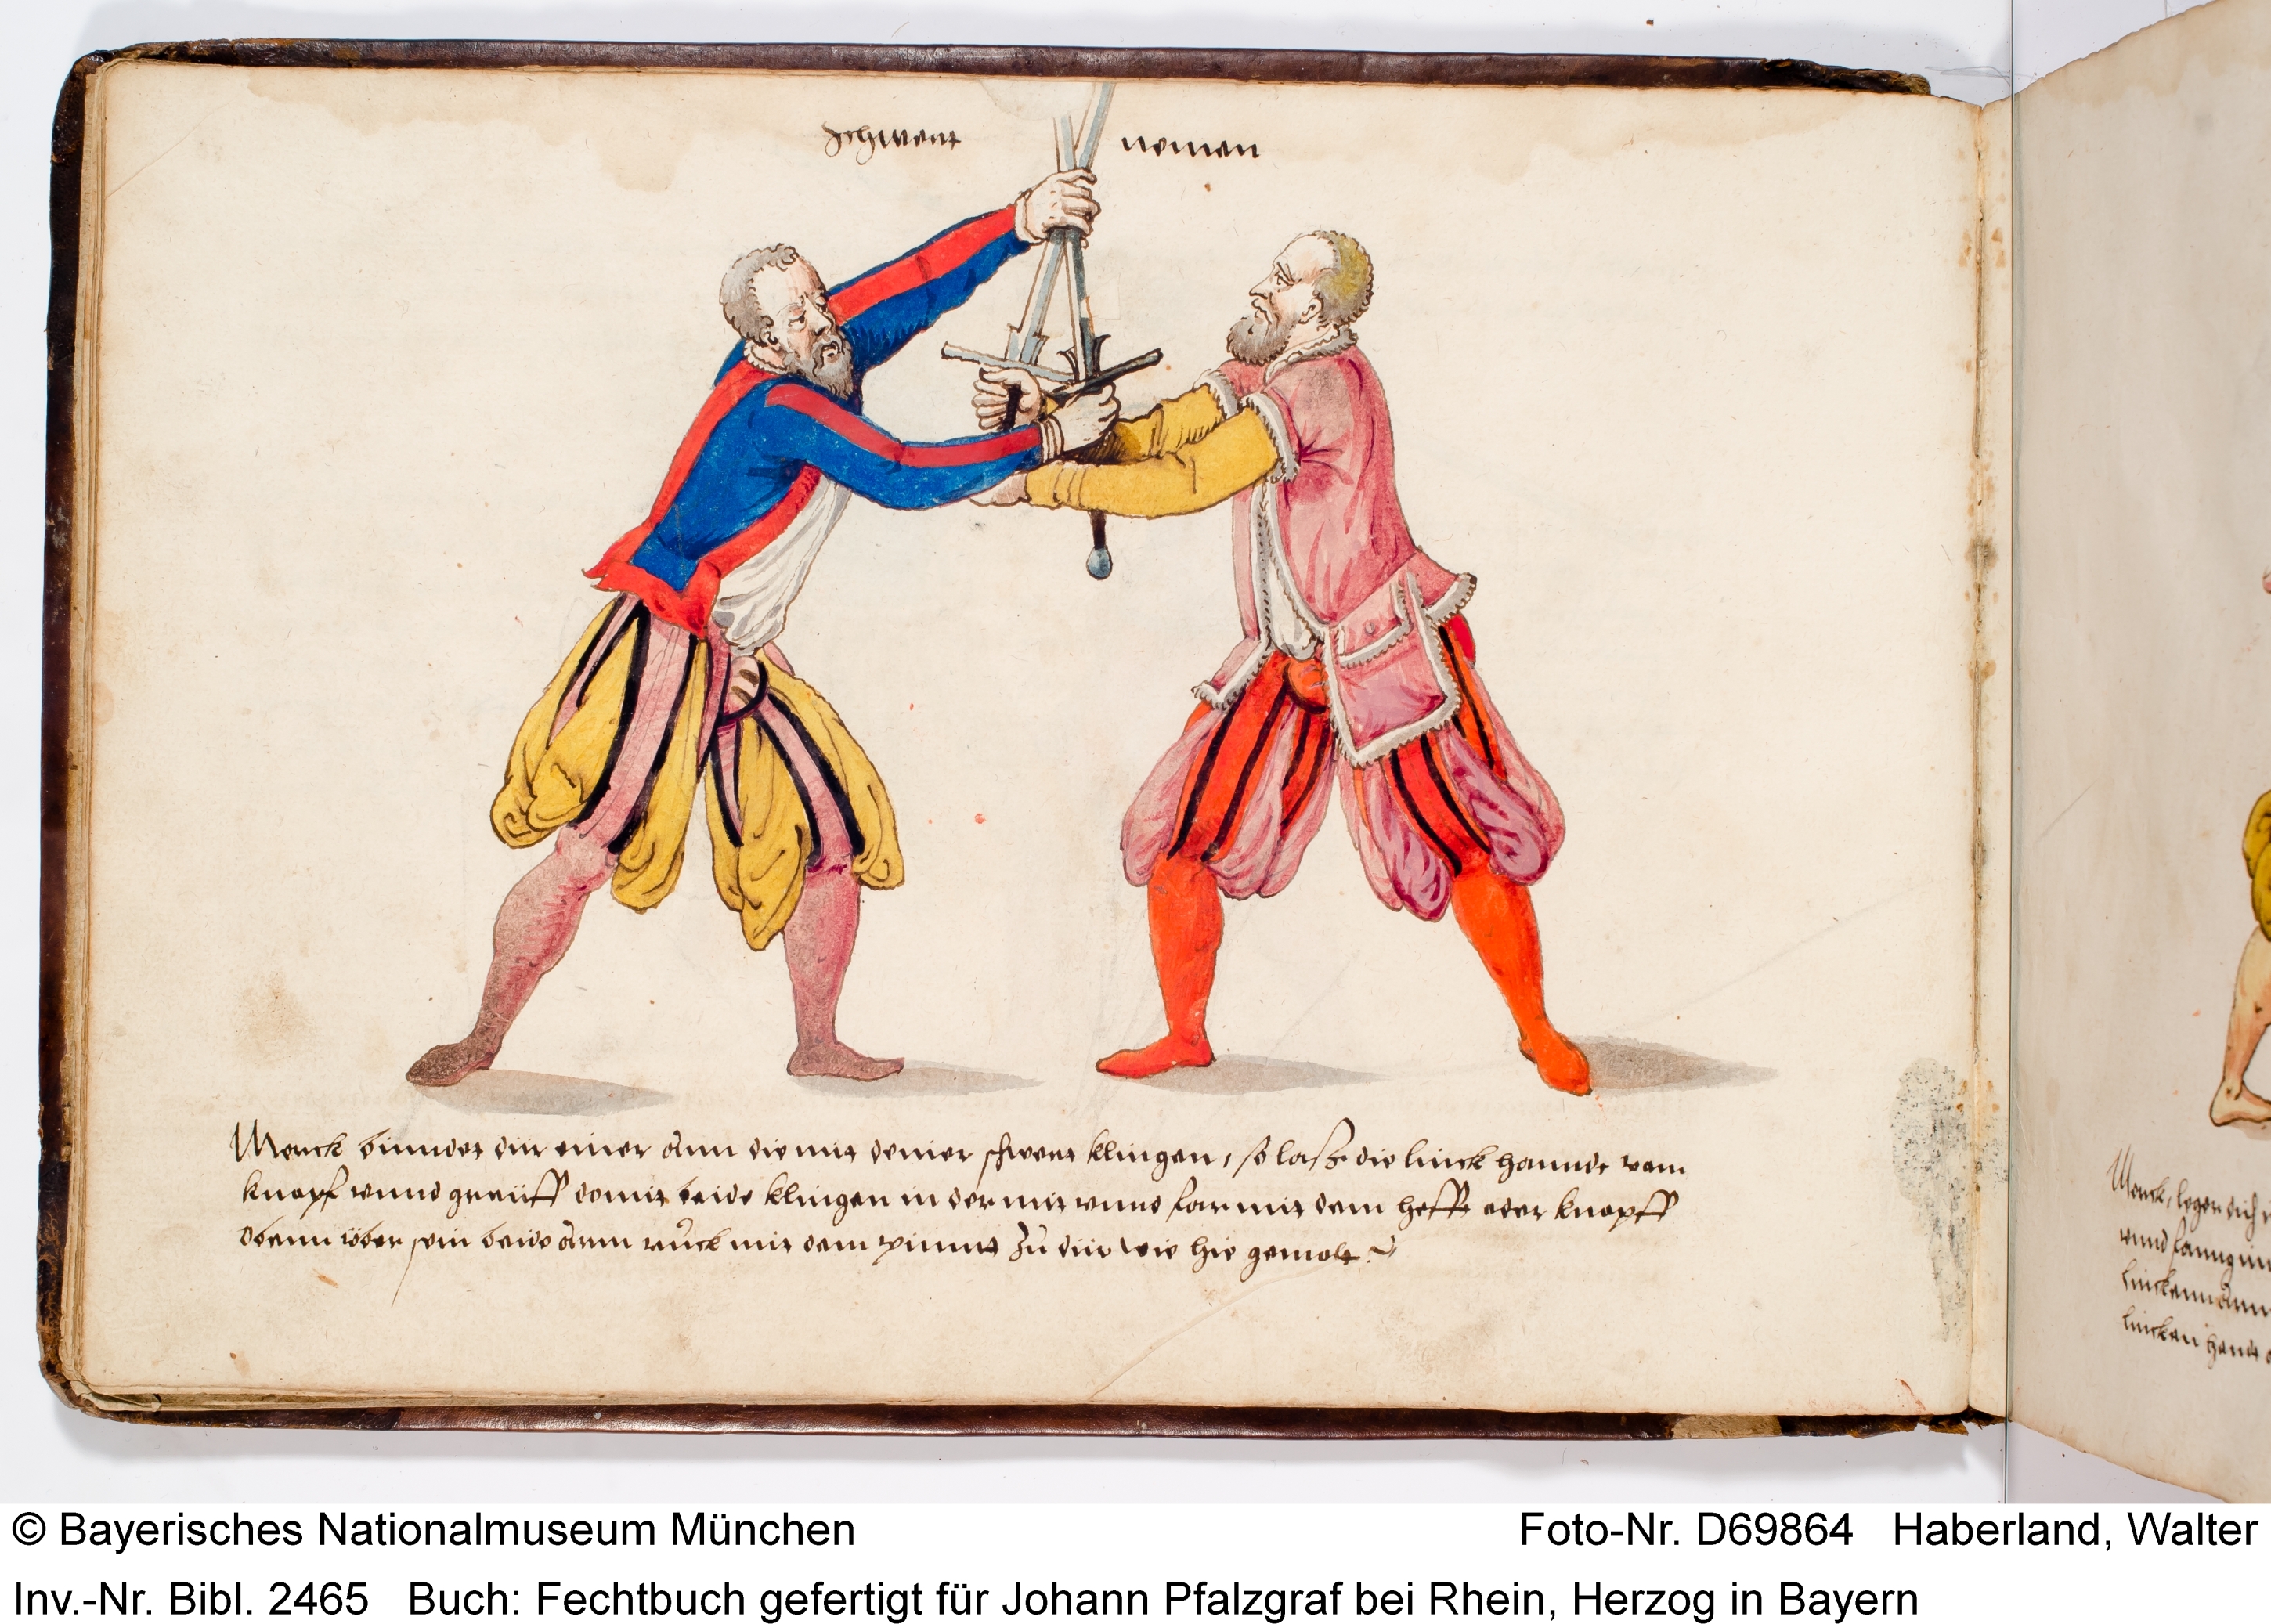 Schwert nemen
Merck binndet dir einer ann die mit deiner schwert klingen, so lasz die linck hanndt vom
knopf vnnd greiff domit beide klingen in der mit vnnd far mit dem hefft oder knopff
obenn vber sein beide Arm ruck mit dem zu dir wie hie gemolt
Merck, leger dich
vnnd
lincken handt
© Bayerisches Nationalmuseum München
Foto-Nr. D69864 Haberland, Walter
Inv.-Nr. Bibl. 2465 Buch: Fechtbuch gefertigt für Johann Pfalzgraf bei Rhein, Herzog in Bayern